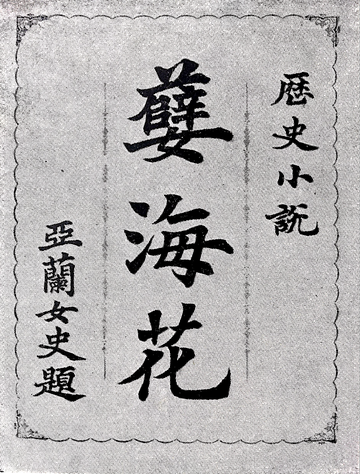 歴史小説
孽海花
亞蘭女史題